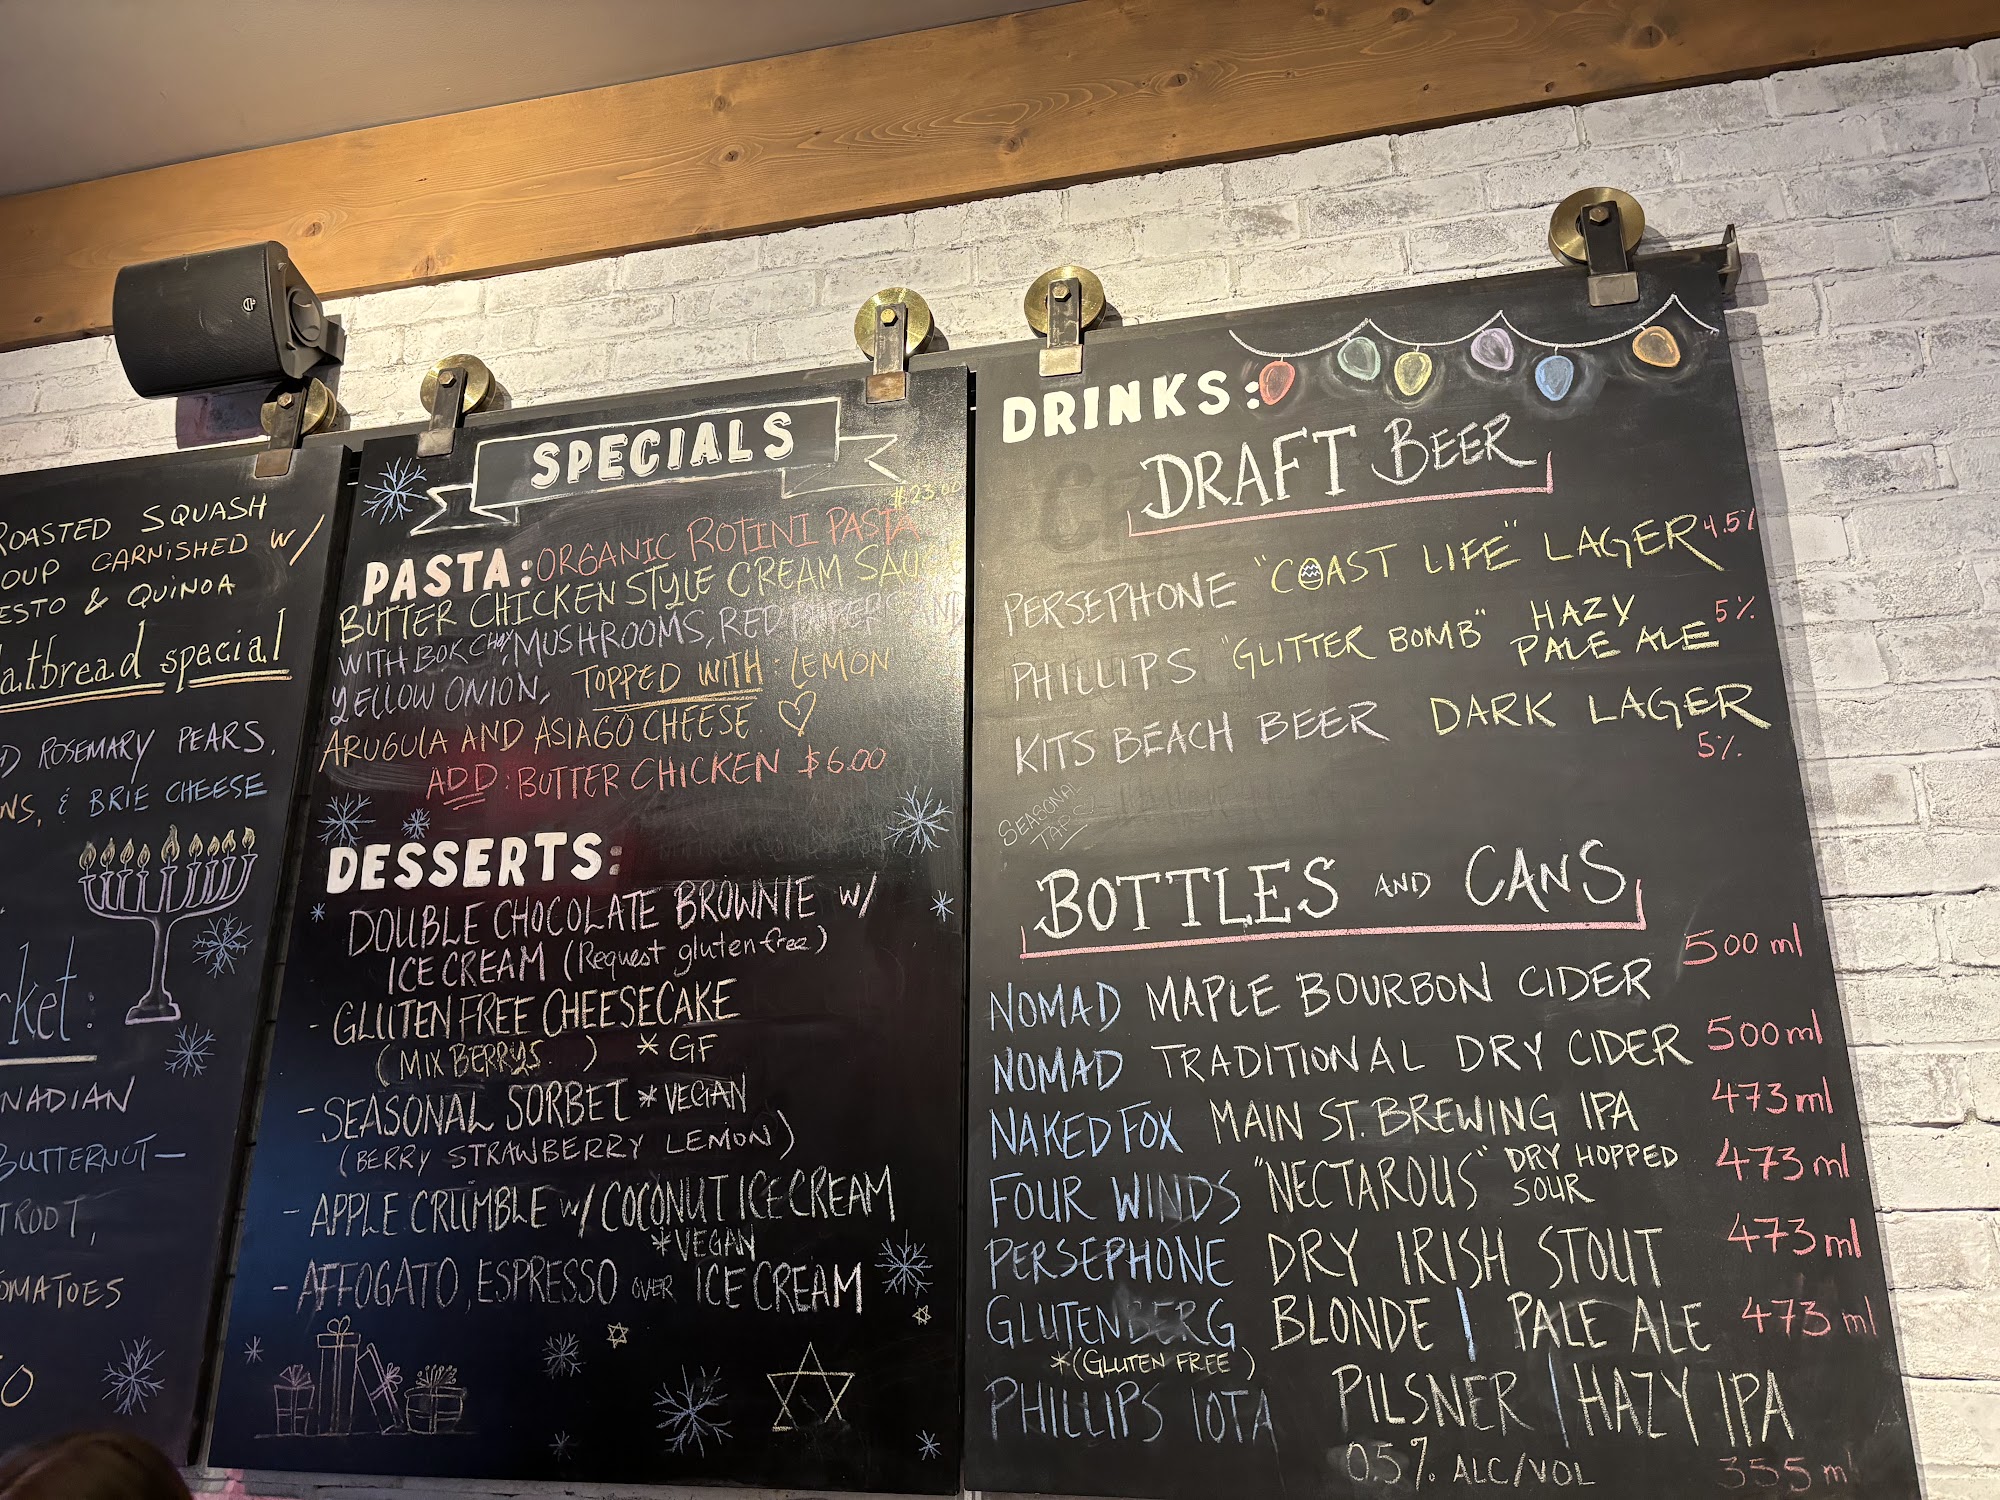 ROASTED SQUASH
GARNISHED W/
& QUINOA
special
ROSEMARY PEARS,
& BRIE CHEESE
BUTTERNUT-
SPECIALS
PASTA: ORGANIC ROTINI PASTA
BUTTER CHICKEN STYLE CREAM
WITH BOK CHOY, MUSHROOMS, RED
YELLOW ONION, TOPPED WITH: LEMON
ARUGULA AND ASIAGO CHEESE. ♡
ADD: BUTTER CHICKEN $6.00
DESSERTS:
DOUBLE CHOCOLATE BROWNIE w/
ICE CREAM (Request gluten free)
- GLUTEN FREE CHEESECAKE
(MIX BERRYS. ) *GF
- SEASONAL SORBET *VEGAN
(BERRY STRAWBERRY LEMON)
- APPLE CRUMBLE w/ COCONUT ICE CREAM
*VEGAN
- AFFOGATO, ESPRESSO OVER ICE CREAM
DRINKS:
DRAFT BEER
PERSEPHONE "COAST LIFE" LAGER 4.5%
PHILLIPS "GLITTER BOMB" HAZY
PALE ALE 5%
KITS BEACH BEER DARK LAGER
5%
SEASONAL
TAPS
BOTTLES AND CANS
NOMAD MAPLE BOURBON CIDER 500 ml
NOMAD TRADITIONAL DRY CIDER 500 ml
NAKED FOX MAIN ST. BREWING IPA 473 ml
FOUR WINDS "NECTAROUS" DRY HOPPED
SOUR 473 ml
PERSEPHONE DRY IRISH STOUT 473 ml
GLUTENBERG BLONDE | PALE ALE 473 ml
*(GLUTEN FREE)
PHILLIPS IOTA PILSNER | HAZY IPA
0.5% ALC/VOL 355 ml